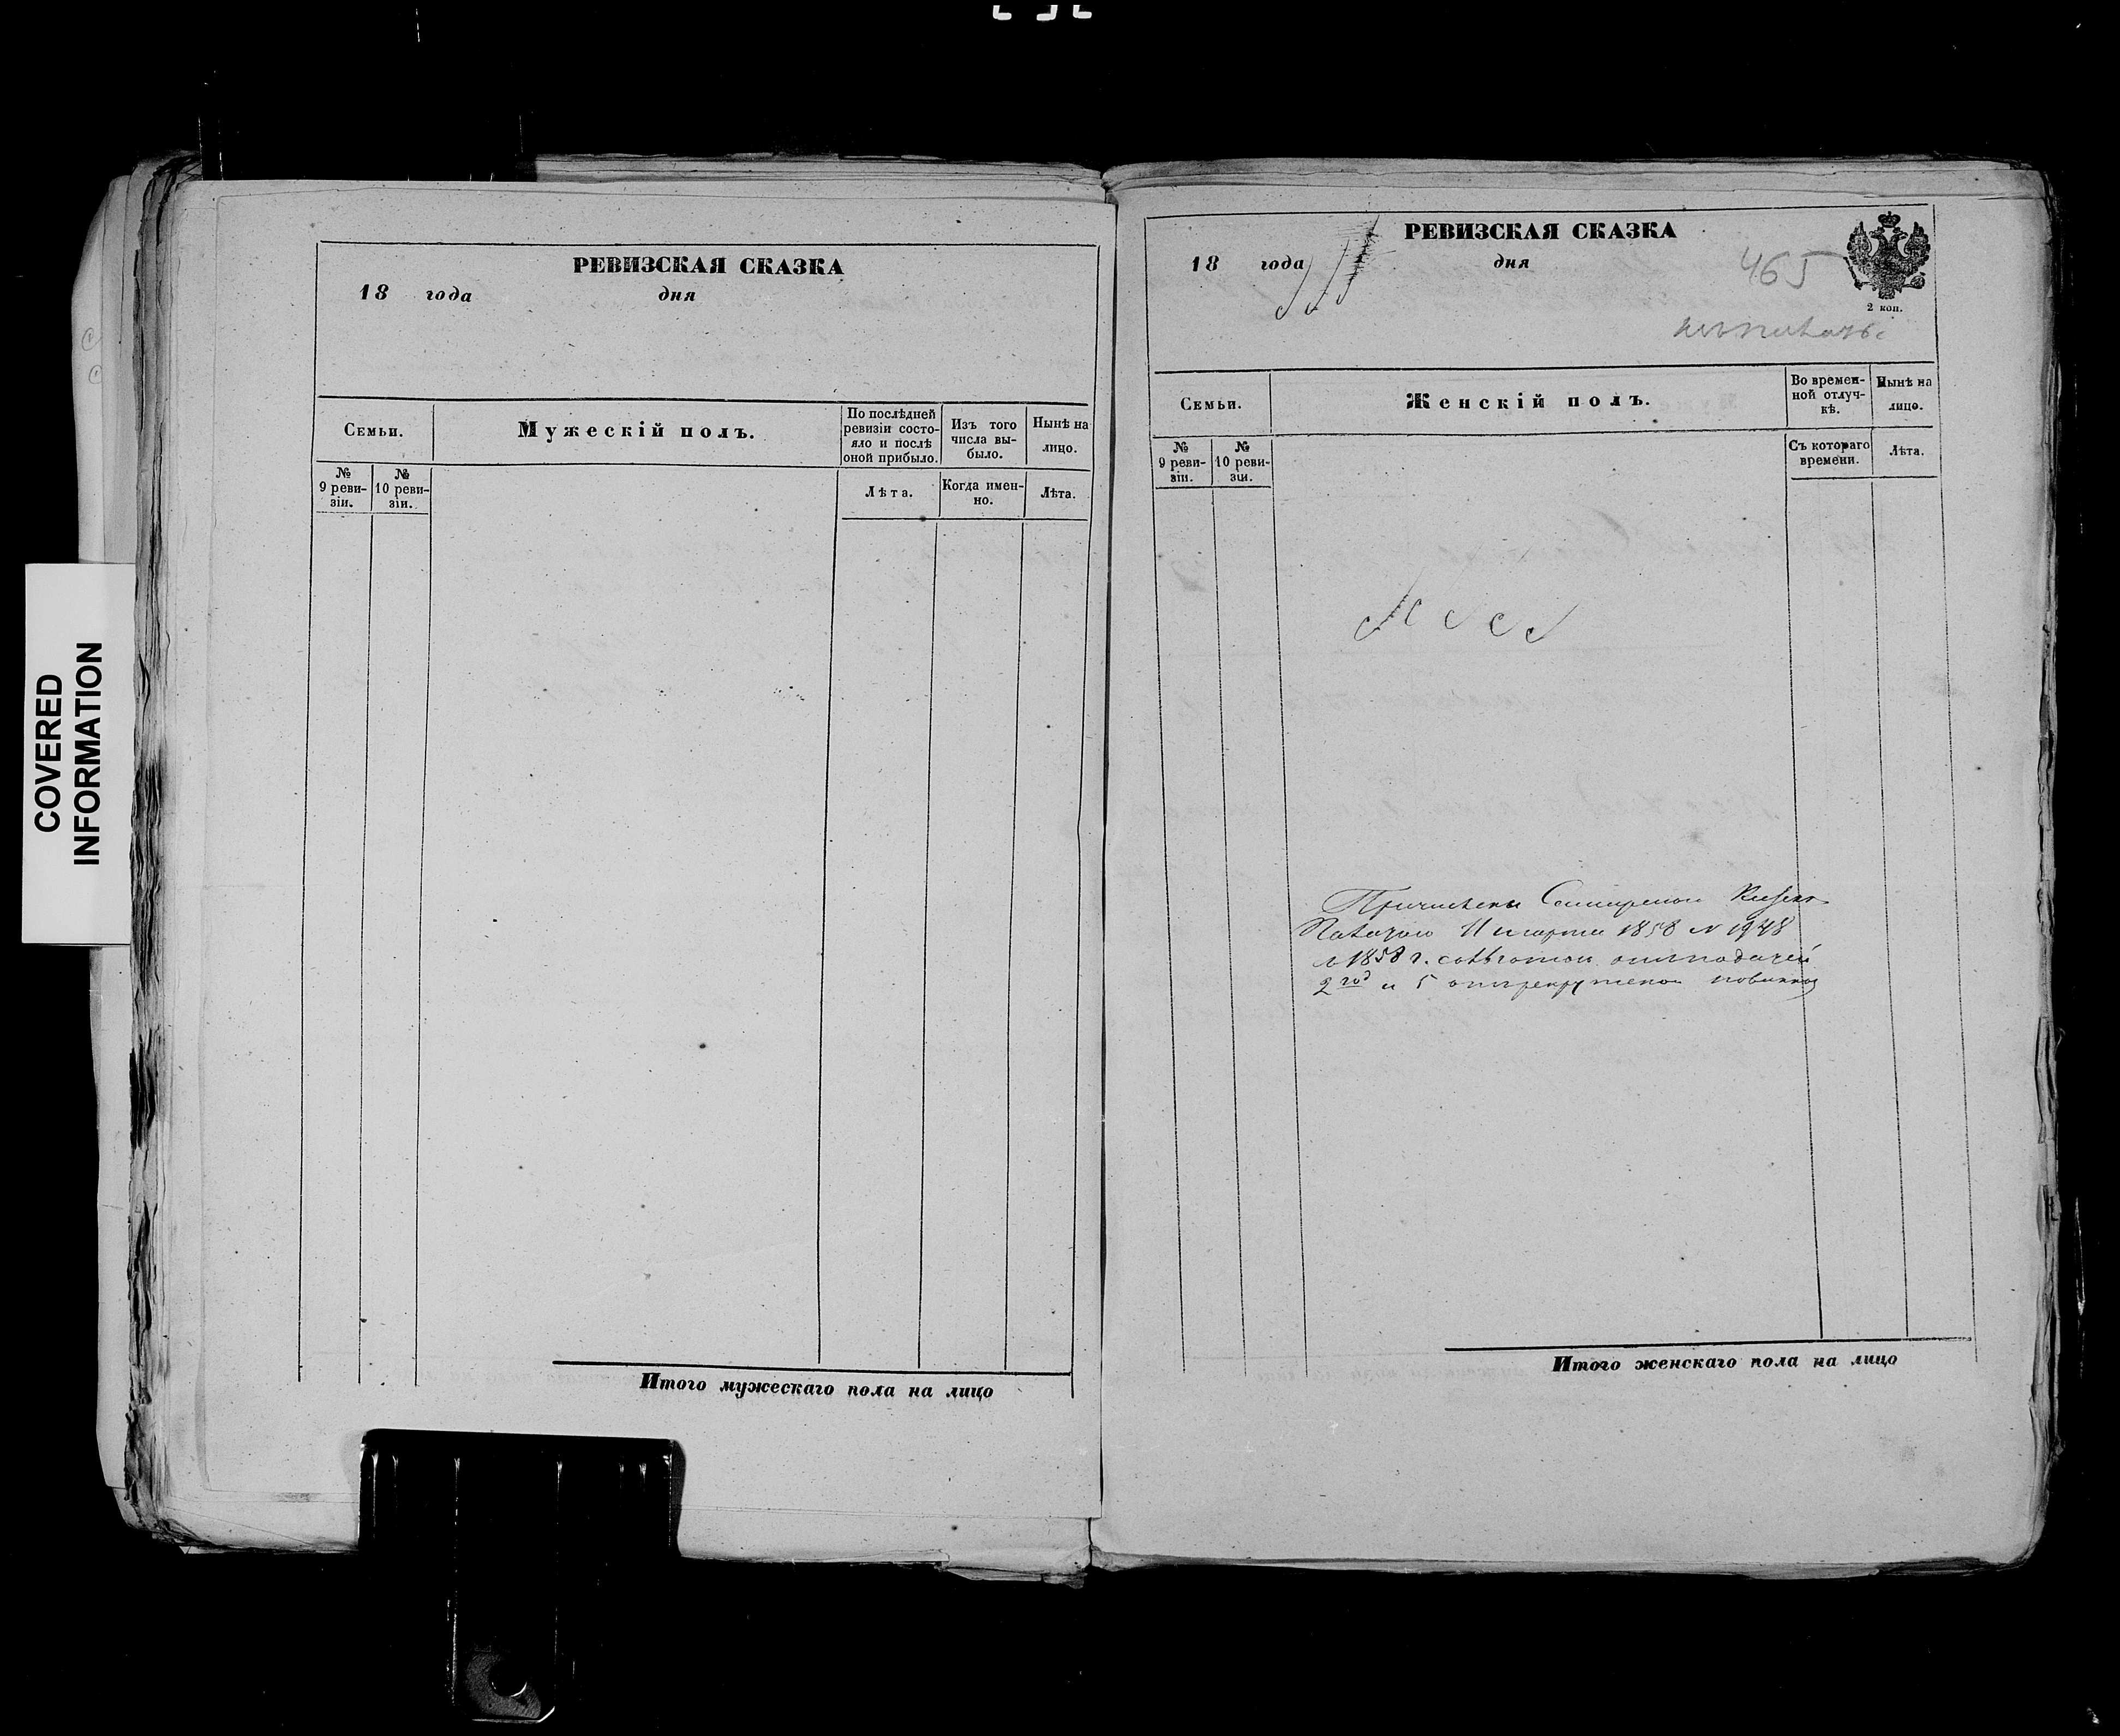 COVERED
INFORMATION
РЕВИЗСКАЯ СКАЗКА
18 года дня
Семьи.
Мужескій полъ.
По послѣдней
ревизіи состо-
яло и послѣ
оной прибыло.
Изъ того
числа вы-
было.
Нынѣ на
лицо.
№
9 реви-
зіи.
№
10 реви-
зіи.
Лѣта.
Когда имен-
но.
Лѣта.
Итого мужескаго пола на лицо
РЕВИЗСКАЯ СКАЗКА
18 года дня
465
2 коп.
Семьи.
Женскій полъ.
Во времен-
ной отлуч-
кѣ.
Нынѣ на
лицо.
№
9 реви-
зіи.
№
10 реви-
зіи.
Съ котораго
времени.
Лѣта.
Причислены
11 марта 1858 № 1948
1858 г. съ льготой подачей
2 год и 5 повинно
Итого женскаго пола на лицо